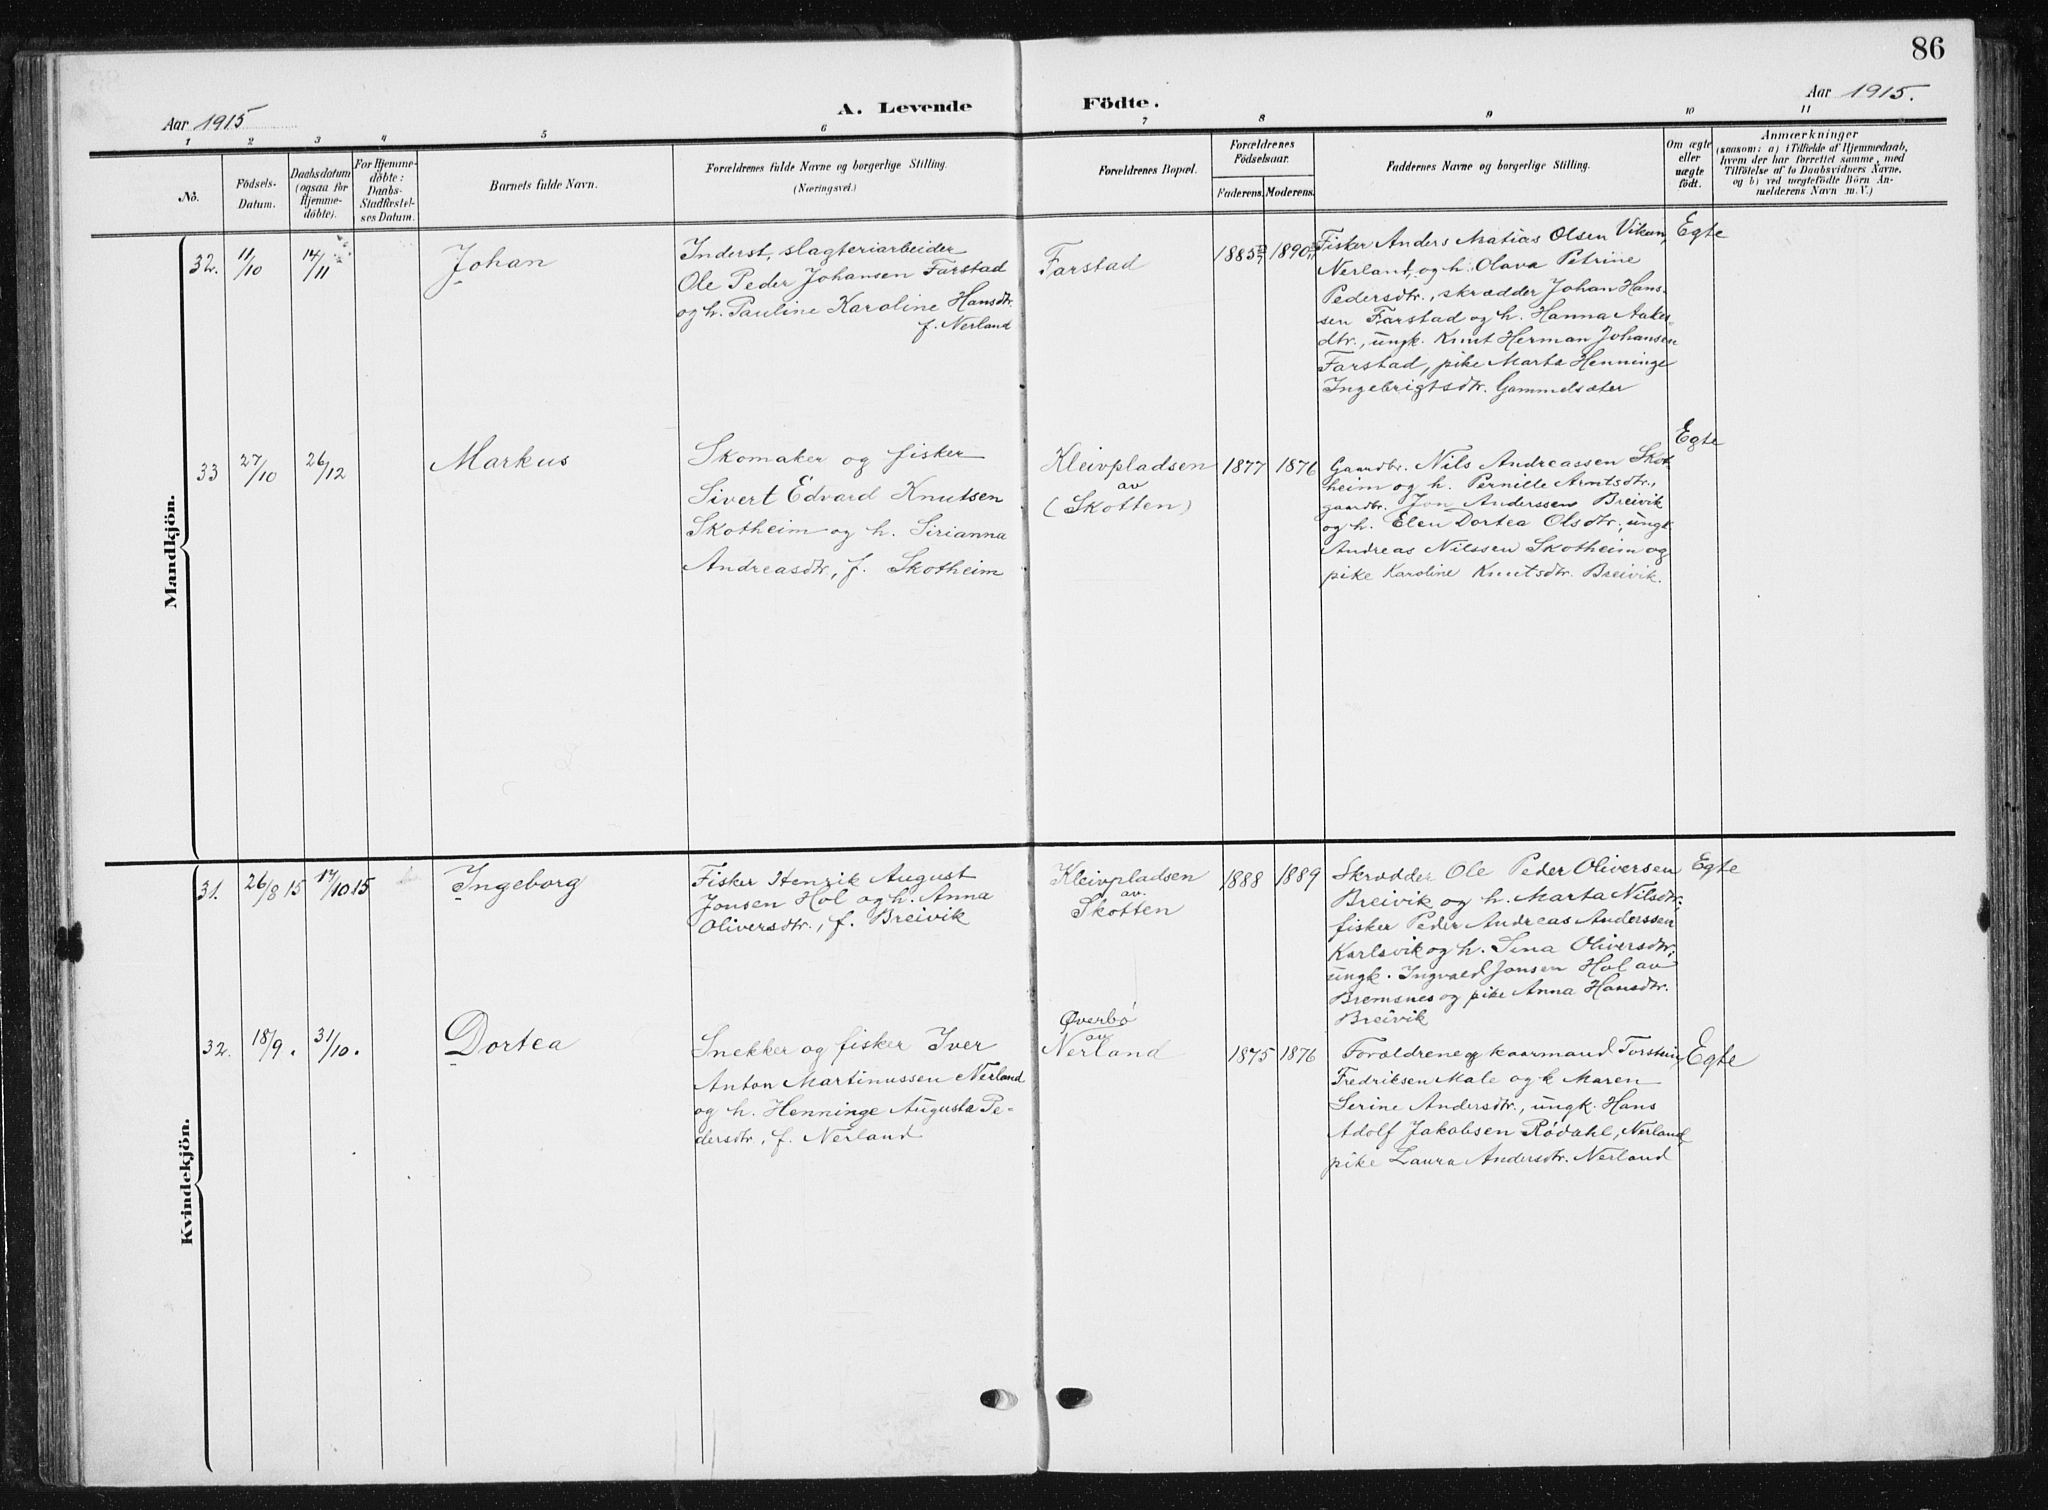 86
Aar 1915
A. Levende Födte.
Aar 1915.
1 2 3 4 5 6 7 8 9 10 11
No.
Födsels-
Datum.
Daabsdatum
(ogsaa for
Hjemme-
döbte).
For Hjemme-
döbte:
Daabs-
Stadfæstel-
ses Datum.
Barnets fulde Navn.
Forældrenes fulde Navne og borgerlige Stilling.
(Næringsvei.)
Forældrenes Bopæl.
Forældrenes
Födselsaar.
Faderens. Moderens.
Faddernes Navne og borgerlige Stilling.
Om ægte
eller
uægte
födt.
Anmærkninger
(saasom: a) i Tilfælde af Hjemmedaab,
hvem der har forrettet samme, med
Tilföielse af to Daabsvidners Navne.
og b) ved uægtefödte Börn An-
melderens Navn m. V.)
Mandkjön.
32. 11/10 14/11
Johan
Inderst, slagteriarbeider
Ole Peder Johansen Farstad
og h. Pauline Karoline Hansdtr.
f. Nerland
Farstad
1885 1890
Fisker Anders Matias Olsen Vikan,
Nerland, og h. Olava Petrine
Pedersdtr., skrædder Johan Hans-
sen Farstad og h. Hanna Aakes-
dtr., ungk. Knut Herman Johansen
Farstad, pike Marta Henninge
Ingebrigtsdtr. Gammelsæter
Egte
33 27/10 26/12
Markus
Skomaker og fisker
Sivert Edvard Knutsen
Skotheim og h. Sirianna
Andreasdtr, f. Skotheim
Kleivpladsen
av
(Skotten)
1877 1876
Gaardbr. Nils Andreassen Skot-
heim og h. Pernille Arntsdtr.,
gaardbr. Jon Anderssen Breivik
og h. Elen Dortea Olsdtr., ungk.
Andreas Nilssen Skotheim og
pike Karoline Knutsdtr. Breivik.
Egte
Kvindekjön.
31. 26/8 15 17/10 15
Ingeborg
Fisker Henrik August
Jonsen Hol og h. Anna
Oliversdtr., f. Breivik
Kleivpladsen
av
Skotten
1888 1889
Skrædder Ole Peder Oliversen
Breivik og h. Marta Nilsdtr.,
fisker Peder Andreas Anderssen
Karlsvik og h. Sina Oliversdtr.,
ungk. Ingvald Jonsen Hol av
Bremsnes og pike Anna Hansdtr.
Breivik
Egte
32. 18/9. 31/10.
Dortea
Snekker og fisker Iver
Anton Martinussen Nerland
og h. Henninge Augusta Pe-
dersdtr., f. Nerland
Øverbö
av
Nerland
1875 1876
Forældrene og kaarmand Torstein
Fredriksen Male og h Maren
Serine Andersdtr., ungk. Hans
Adolf Jakobsen Rödahl, Nerland,
pike Laura Andersdtr. Nerland
Egte